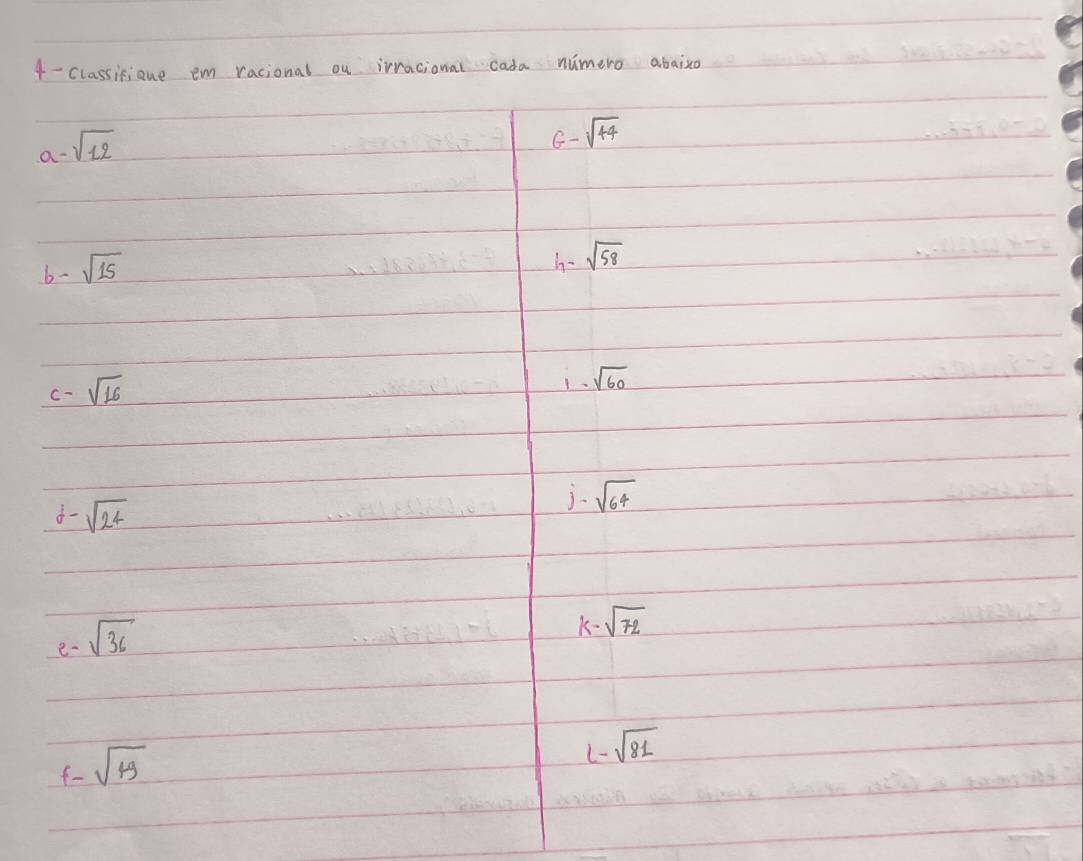 4-Classifique em racional ou irracional cada número abaixo
a-√12
b-√15
c-√16
d-√24
e-√36
f-√49
G-√44
h-√58
i-√60
j-√64
k-√72
l-√81